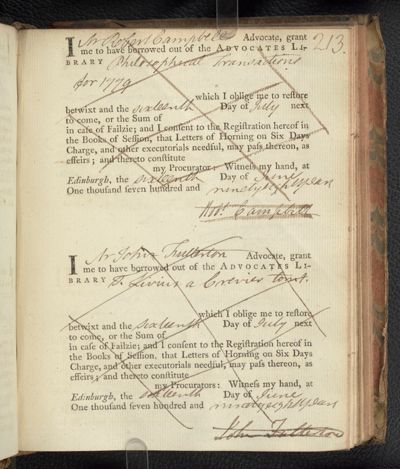 213.
I Mr Robert Campbell Advocate, grant
me to have borrowed out of the ADVOCATES LI-
BRARY Philosophical Transactions
for 1779
which I oblige me to restore
betwixt and the sixteenth Day of July next
to come, or the Sum of
in case of Failzie; and I consent to the Registration hereof in
the Books of Session, that Letters of Horning on Six Days
Charge, and other executorials needful, may pass thereon, as
effeirs; and thereto constitute
my Procurator: Witness my hand, at
Edinburgh, the sixteenth Day of June
One thousand seven hundred and ninety eight years
Robt. Campbell
I Mr John Fullerton Advocate, grant
me to have borrowed out of the ADVOCATES LI-
BRARY T. Livius a Crevier tom 1.
which I oblige me to restore
betwixt and the sixteenth Day of July next
to come, or the Sum of
in case of Failzie; and I consent to the Registration hereof in
the Books of Session, that Letters of Horning on Six Days
Charge, and other executorials needful, may pass thereon, as
effeirs; and thereto constitute
my Procurators: Witness my hand, at
Edinburgh, the sixteenth Day of June
One thousand seven hundred and ninety eight years
John Fullerton